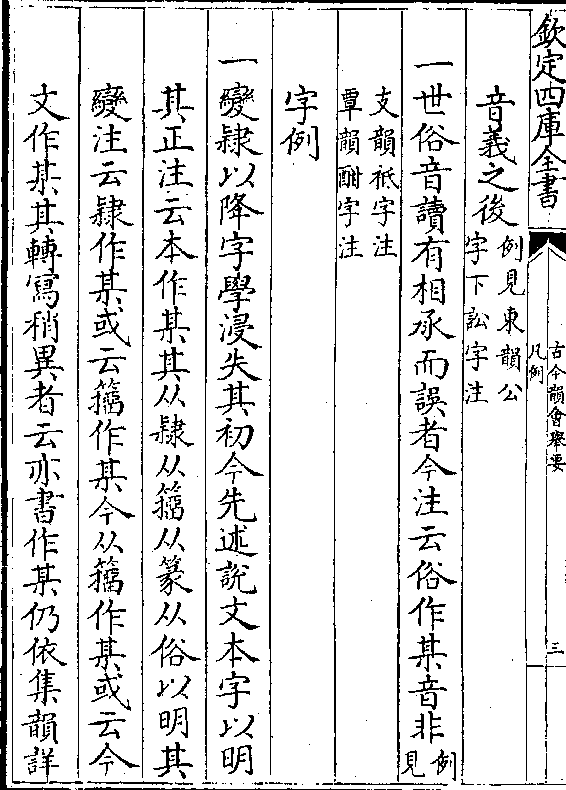 欽定四庫全書
古今韻會舉要
凡例
三
音義之後例見東韻公
字下訟字注
一世俗音讀有相承而誤者今注云俗作某音非例
見
支韻祗字注
覃韻酣字注
字例
一變隷以降字學浸失其初今先述說文本字以明
其正注云本作某其从隷从籀从篆从俗以明其
變注云隷作某或云籀作某今从籀作某或云今
文作某其轉寫稍異者云亦書作某仍依集韻詳